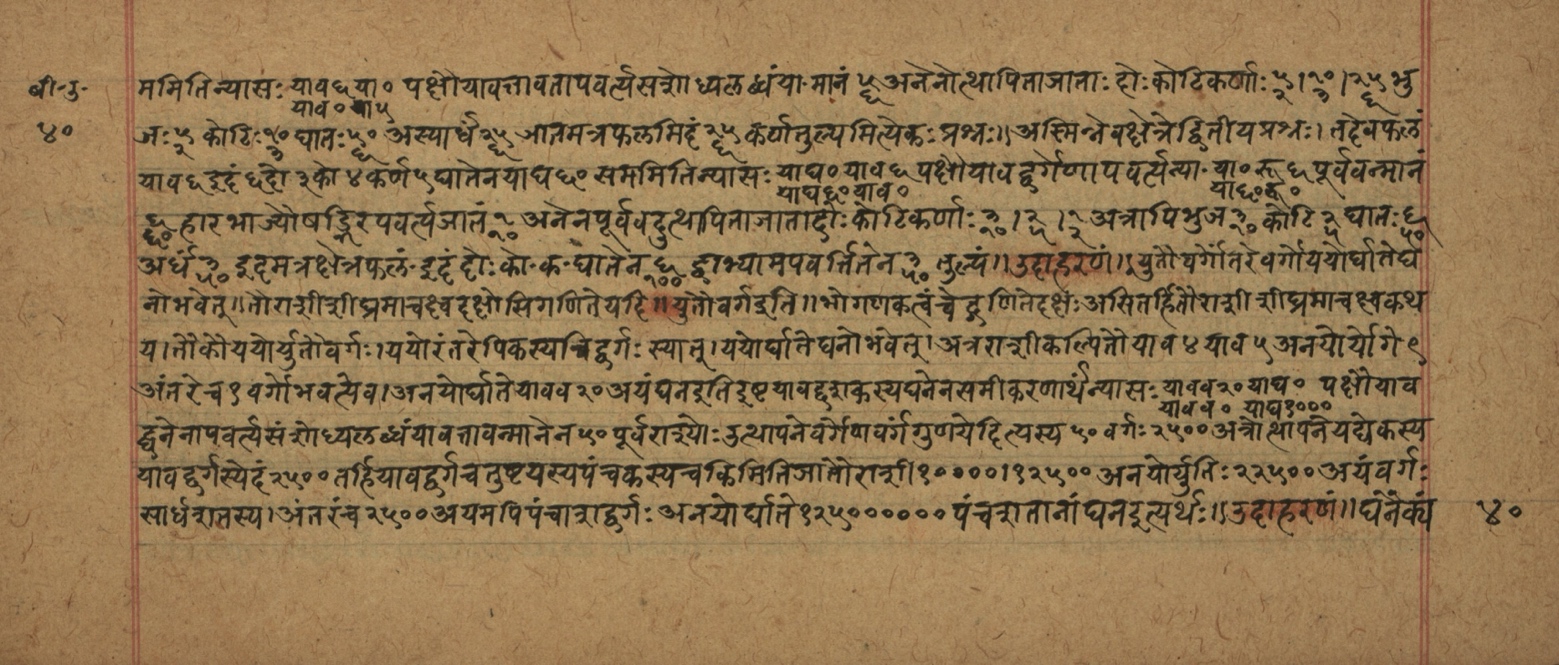 बी॰ उ॰ ममितिन्यासः याव६या० पक्षौयावत्तावतापवर्त्यसशोध्यलब्धंया॰मानं अनेनोत्थापिताजाताः दोः कोटिकर्णाः भु
याव०या५
४० जः कोटिः घातः अस्यार्धं ञातमत्रफलमिदं कर्णातुल्यमित्येकः प्रश्नः॥अस्मिन्नेवक्षेत्रेद्वितीयप्रश्नः। तदेवफलं
याव६इदंदो३को४कर्ण५घातेनयाघ६० सममितिन्यासः याघ०याव६ पक्षौयावद्वर्गेणापवर्त्यन्या॰ या०रू६ पूर्ववन्मानं
याघ६०याव० या६०रू०
हारभाज्यौषड्भिरपवर्त्यजातं अनेनपूर्ववदुत्थापिताजातादोः कोटिकर्णाः अत्रापिभुज कोटि घातः
अर्धं इदमत्रक्षेत्रफलं॰इदंदोः को॰क॰घातेन द्वाभ्यामपवर्त्तितेन तुल्यं॥उदाहरणं॥युतौवर्गोंतरेवर्गोययोर्घातेघ
नोभवेत्॥तौराशीशीघ्रमाचक्ष्वदक्षोसिगणितेयदि॥युतौवर्गइति॥भोगणकत्वंचेद्गणितेदक्षः असितर्हितौराशीशीघ्रमाचक्ष्वकथ
य।तौकौययोर्युतौवर्गः।ययोरंतरेपिकस्यचिद्वर्गः स्यात्।ययोर्घातेघनोभवेत्।अत्रराशीकल्पितौयाव४याव५अनयोर्योगे९
अंतरेच१वर्गोभवत्येव।अनयोर्घातेयावव२०अयंघनइतिइष्टयावद्दशकस्यघनेनसमीकरणार्थंन्यासः यावव२०याघ० पक्षौयाव
यावव० याघ१०००
द्घनेनापवर्त्यसंशोध्यलब्धंयावत्तावन्मानेन५०पूर्वराश्योः उत्थापनेवर्गेणवर्गंगुणयेदित्यस्य५०वर्गः२५००अत्रोत्थापनेयद्येकस्य
यावद्वर्गस्येदं२५००तर्हियावद्वर्गचतुष्टयस्यपंचकस्यचकिमितिजातौराशी१००००।१२५००अनयोर्युतिः२२५००अयंवर्गः
सार्धशतस्य।अंतरंच२५००अयमपिपंचाशद्वर्गः अनयोर्घाते१२५००००००पंचशतानांघनइत्यर्थः॥उदाहरणं॥घनैक्यं ४०